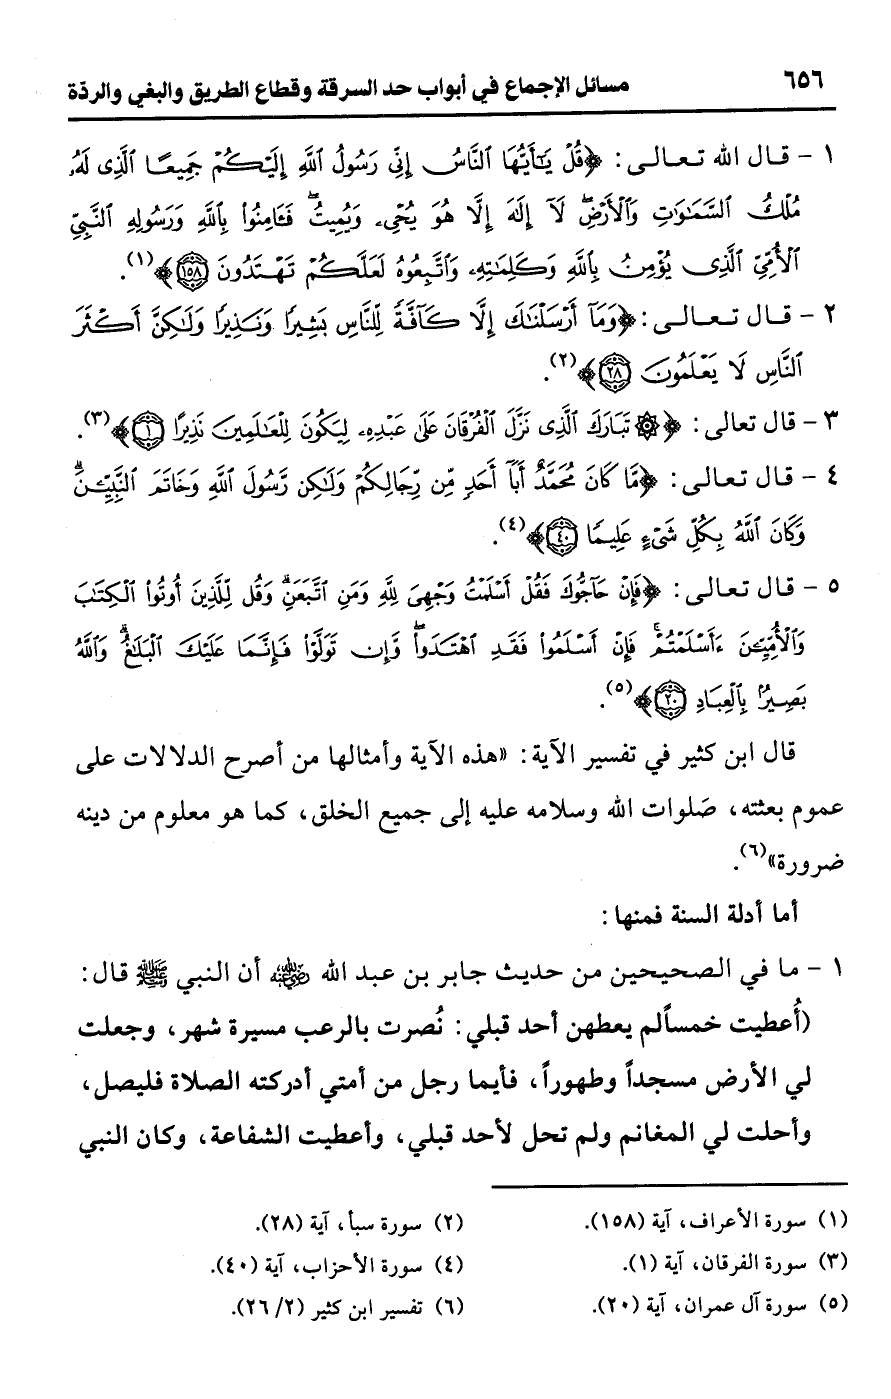 ٦٥٦ مسائل الإجماع في أبواب حد السرقة وقطاع الطريق والبغي والردّة
١ - قال الله تعالى: ﴿قُلْ يَٰٓأَيُّهَا ٱلنَّاسُ إِنِّى رَسُولُ ٱللَّهِ إِلَيْكُمْ جَمِيعًا ٱلَّذِى لَهُۥ
مُلْكُ ٱلسَّمَٰوَٰتِ وَٱلْأَرْضِۖ لَآ إِلَٰهَ إِلَّا هُوَ يُحْىِۦ وَيُمِيتُۖ فَـَٔامِنُوا۟ بِٱللَّهِ وَرَسُولِهِ ٱلنَّبِىِّ
ٱلْأُمِّىِّ ٱلَّذِى يُؤْمِنُ بِٱللَّهِ وَكَلِمَٰتِهِۦ وَٱتَّبِعُوهُ لَعَلَّكُمْ تَهْتَدُونَ ١٥٨﴾(١).
٢ - قال تعالى: ﴿وَمَآ أَرْسَلْنَٰكَ إِلَّا كَآفَّةً لِّلنَّاسِ بَشِيرًا وَنَذِيرًا وَلَٰكِنَّ أَكْثَرَ
ٱلنَّاسِ لَا يَعْلَمُونَ ٢٨﴾(٢).
٣ - قال تعالى: ﴿۞ تَبَارَكَ ٱلَّذِى نَزَّلَ ٱلْفُرْقَانَ عَلَىٰ عَبْدِهِۦ لِيَكُونَ لِلْعَٰلَمِينَ نَذِيرًا ١﴾(٣).
٤ - قال تعالى: ﴿مَّا كَانَ مُحَمَّدٌ أَبَآ أَحَدٍ مِّن رِّجَالِكُمْ وَلَٰكِن رَّسُولَ ٱللَّهِ وَخَاتَمَ ٱلنَّبِيِّـۧنَۗ
وَكَانَ ٱللَّهُ بِكُلِّ شَىْءٍ عَلِيمًا ٤٠﴾(٤).
٥ - قال تعالى: ﴿فَإِنْ حَآجُّوكَ فَقُلْ أَسْلَمْتُ وَجْهِىَ لِلَّهِ وَمَنِ ٱتَّبَعَنِۗ وَقُل لِّلَّذِينَ أُوتُوا۟ ٱلْكِتَٰبَ
وَٱلْأُمِّيِّـۧنَ ءَأَسْلَمْتُمْۚ فَإِنْ أَسْلَمُوا۟ فَقَدِ ٱهْتَدَوا۟ۖ وَّإِن تَوَلَّوْا۟ فَإِنَّمَا عَلَيْكَ ٱلْبَلَٰغُۗ وَٱللَّهُ
بَصِيرٌۢ بِٱلْعِبَادِ ٢٠﴾(٥).
قال ابن كثير في تفسير الآية: «هذه الآية وأمثالها من أصرح الدلالات على
عموم بعثته، صَلوات الله وسلامه عليه إلى جميع الخلق، كما هو معلوم من دينه
ضرورة»(٦).
أما أدلة السنة فمنها:
١ - ما في الصحيحين من حديث جابر بن عبد الله رضي الله عنه أن النبي ﷺ قال:
(أُعطيت خمساً لم يعطهن أحد قبلي: نُصرت بالرعب مسيرة شهر، وجعلت
لي الأرض مسجداً وطهوراً، فأيما رجل من أمتي أدركته الصلاة فليصل،
وأحلت لي المغانم ولم تحل لأحد قبلي، وأعطيت الشفاعة، وكان النبي
(١) سورة الأعراف، آية (١٥٨). (٢) سورة سبأ، آية (٢٨).
(٣) سورة الفرقان، آية (١). (٤) سورة الأحزاب، آية (٤٠).
(٥) سورة آل عمران، آية (٢٠). (٦) تفسير ابن كثير (٢/ ٢٦).